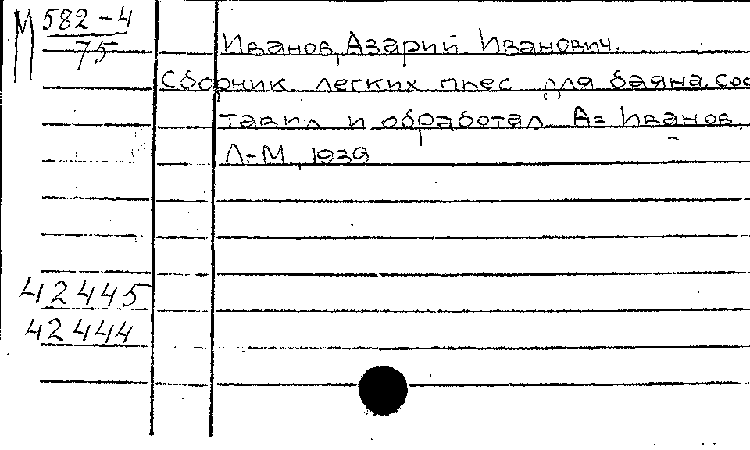 М 582-4
75
Иванов, Азарий Иванович.
Сборник легких пьес для баяна. Сос
тавил и обработал Аз Иванов.
Л-М, 1939
42445
42444